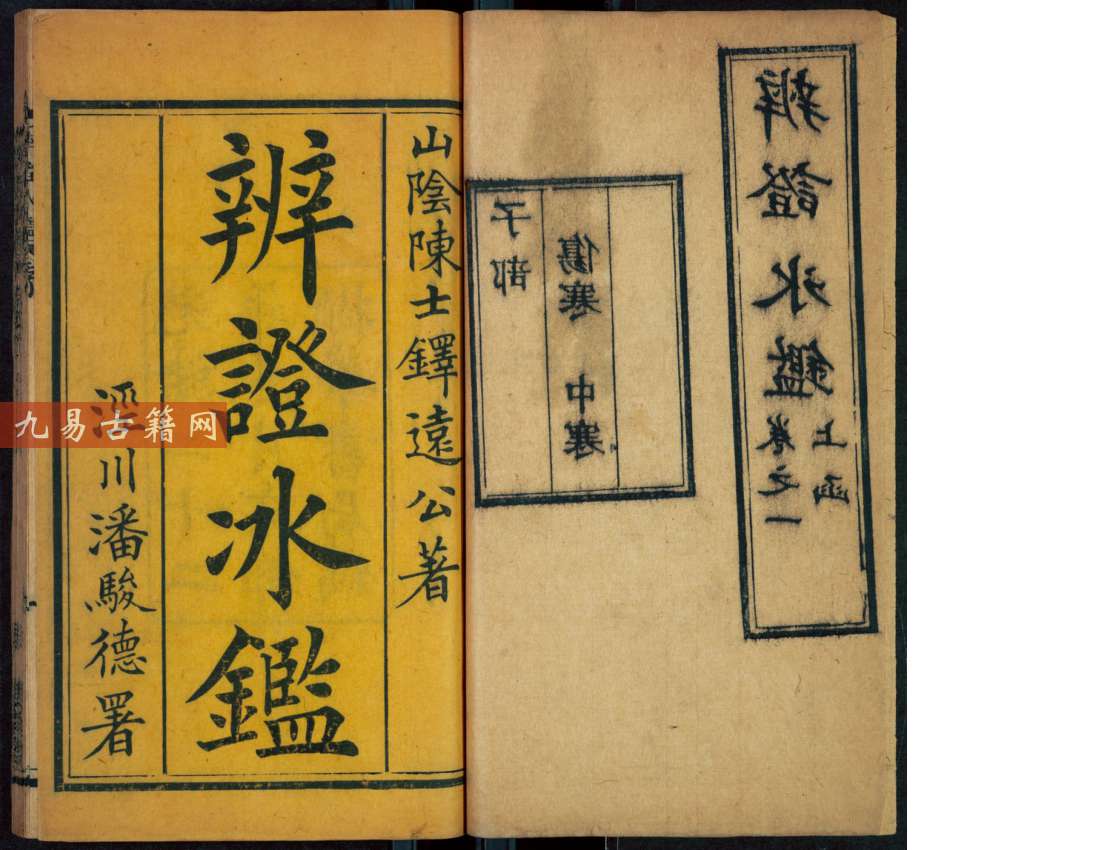 辨證氷鑑
上函
卷之一
傷寒 中寒
子部
山陰陳士鐸遠公著
辨證冰鑑
涇川潘駿德署
九易古籍网